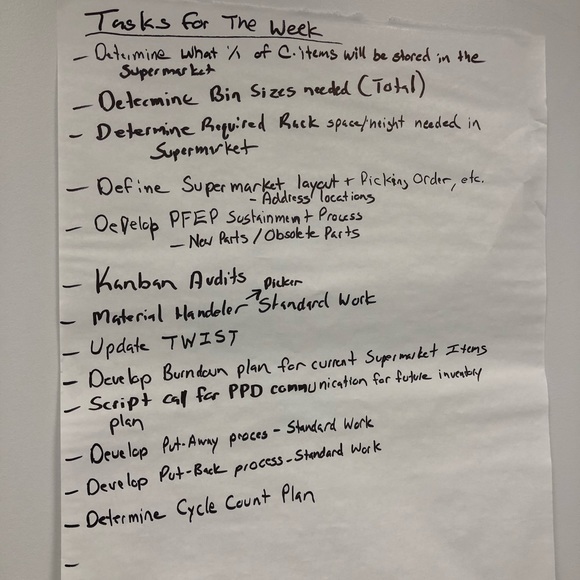 Tasks for The Week
- Determine what % of C-items will be stored in the
Supermarket
- Determine Bin Sizes needed (Total)
- Determine Required Rack space/height needed in
Supermarket
- Define Supermarket layout + Picking Order, etc.
- Address locations
- Develop PFEP Sustainment Process
- New Parts / Obsolete Parts
- Kanban Audits
Picker
- Material Handeler Standard Work
- Update TWIST
- Develop Burndown plan for current Supermarket Items
- Script call for PPD communication for future inventory
plan
- Develop Put-Away proces - Standard Work
- Develop Put-Back process - Standard Work
- Determine Cycle Count Plan
-